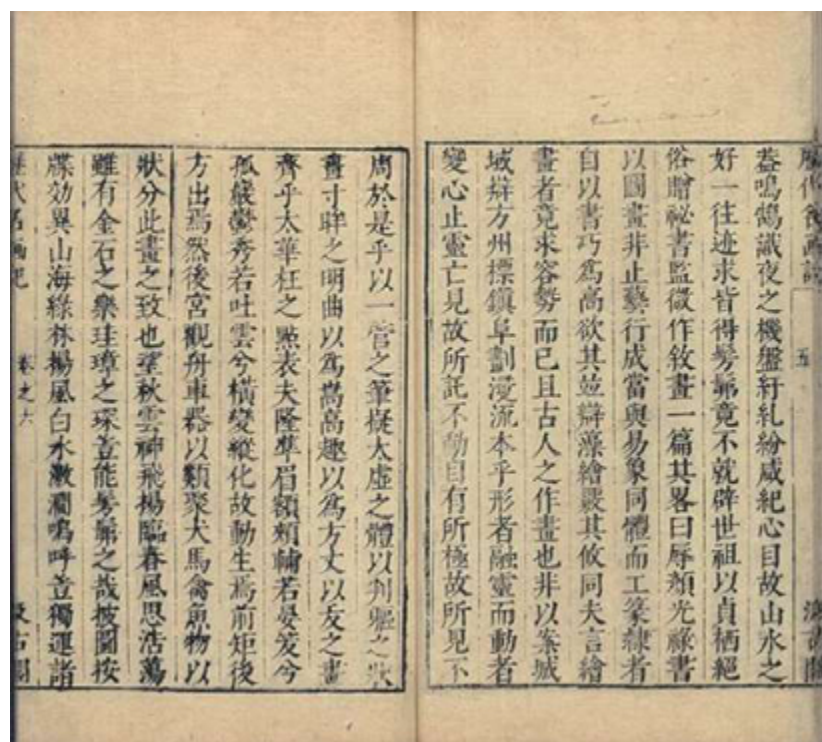 歷代名画記 五 汲古閣
蓋鳴鵠識夜之機盤紆糺紛咸紀心目故山水之
好一往迹求皆得髣髴竟不就辟世祖以貞栖絕
俗贈祕書監微作敘畫一篇其畧曰辱顏光祿書
以圖畫非止藝行成當與易象同體而工篆隸者
自以書巧爲高欲其並辯藻繪覈其攸同夫言繪
畫者竟求容勢而已且古人之作畫也非以案城
域辯方州標鎮阜劃漫流本乎形者融靈而動者
變心止靈亡見故所託不動目有所極故所見不
周於是乎以一管之筆擬太虛之體以判軀之狀
畫寸眸之明曲以爲嵩高趣以爲方丈以叐之畫
齊乎太華枉之點表夫隆準眉額頰輔若晏笑兮
孤巖鬱秀若吐雲兮橫變縱化故動生焉前矩後
方出焉然後宮觀舟車器以類聚犬馬禽魚物以
狀分此畫之致也望秋雲神飛揚臨春風思浩蕩
雖有金石之樂珪璋之琛豈能髣髴之哉披圖按
牒効異山海綠林揚風白水激澗嗚呼豈獨運諸
歷代名画記 卷之六 汲古閣